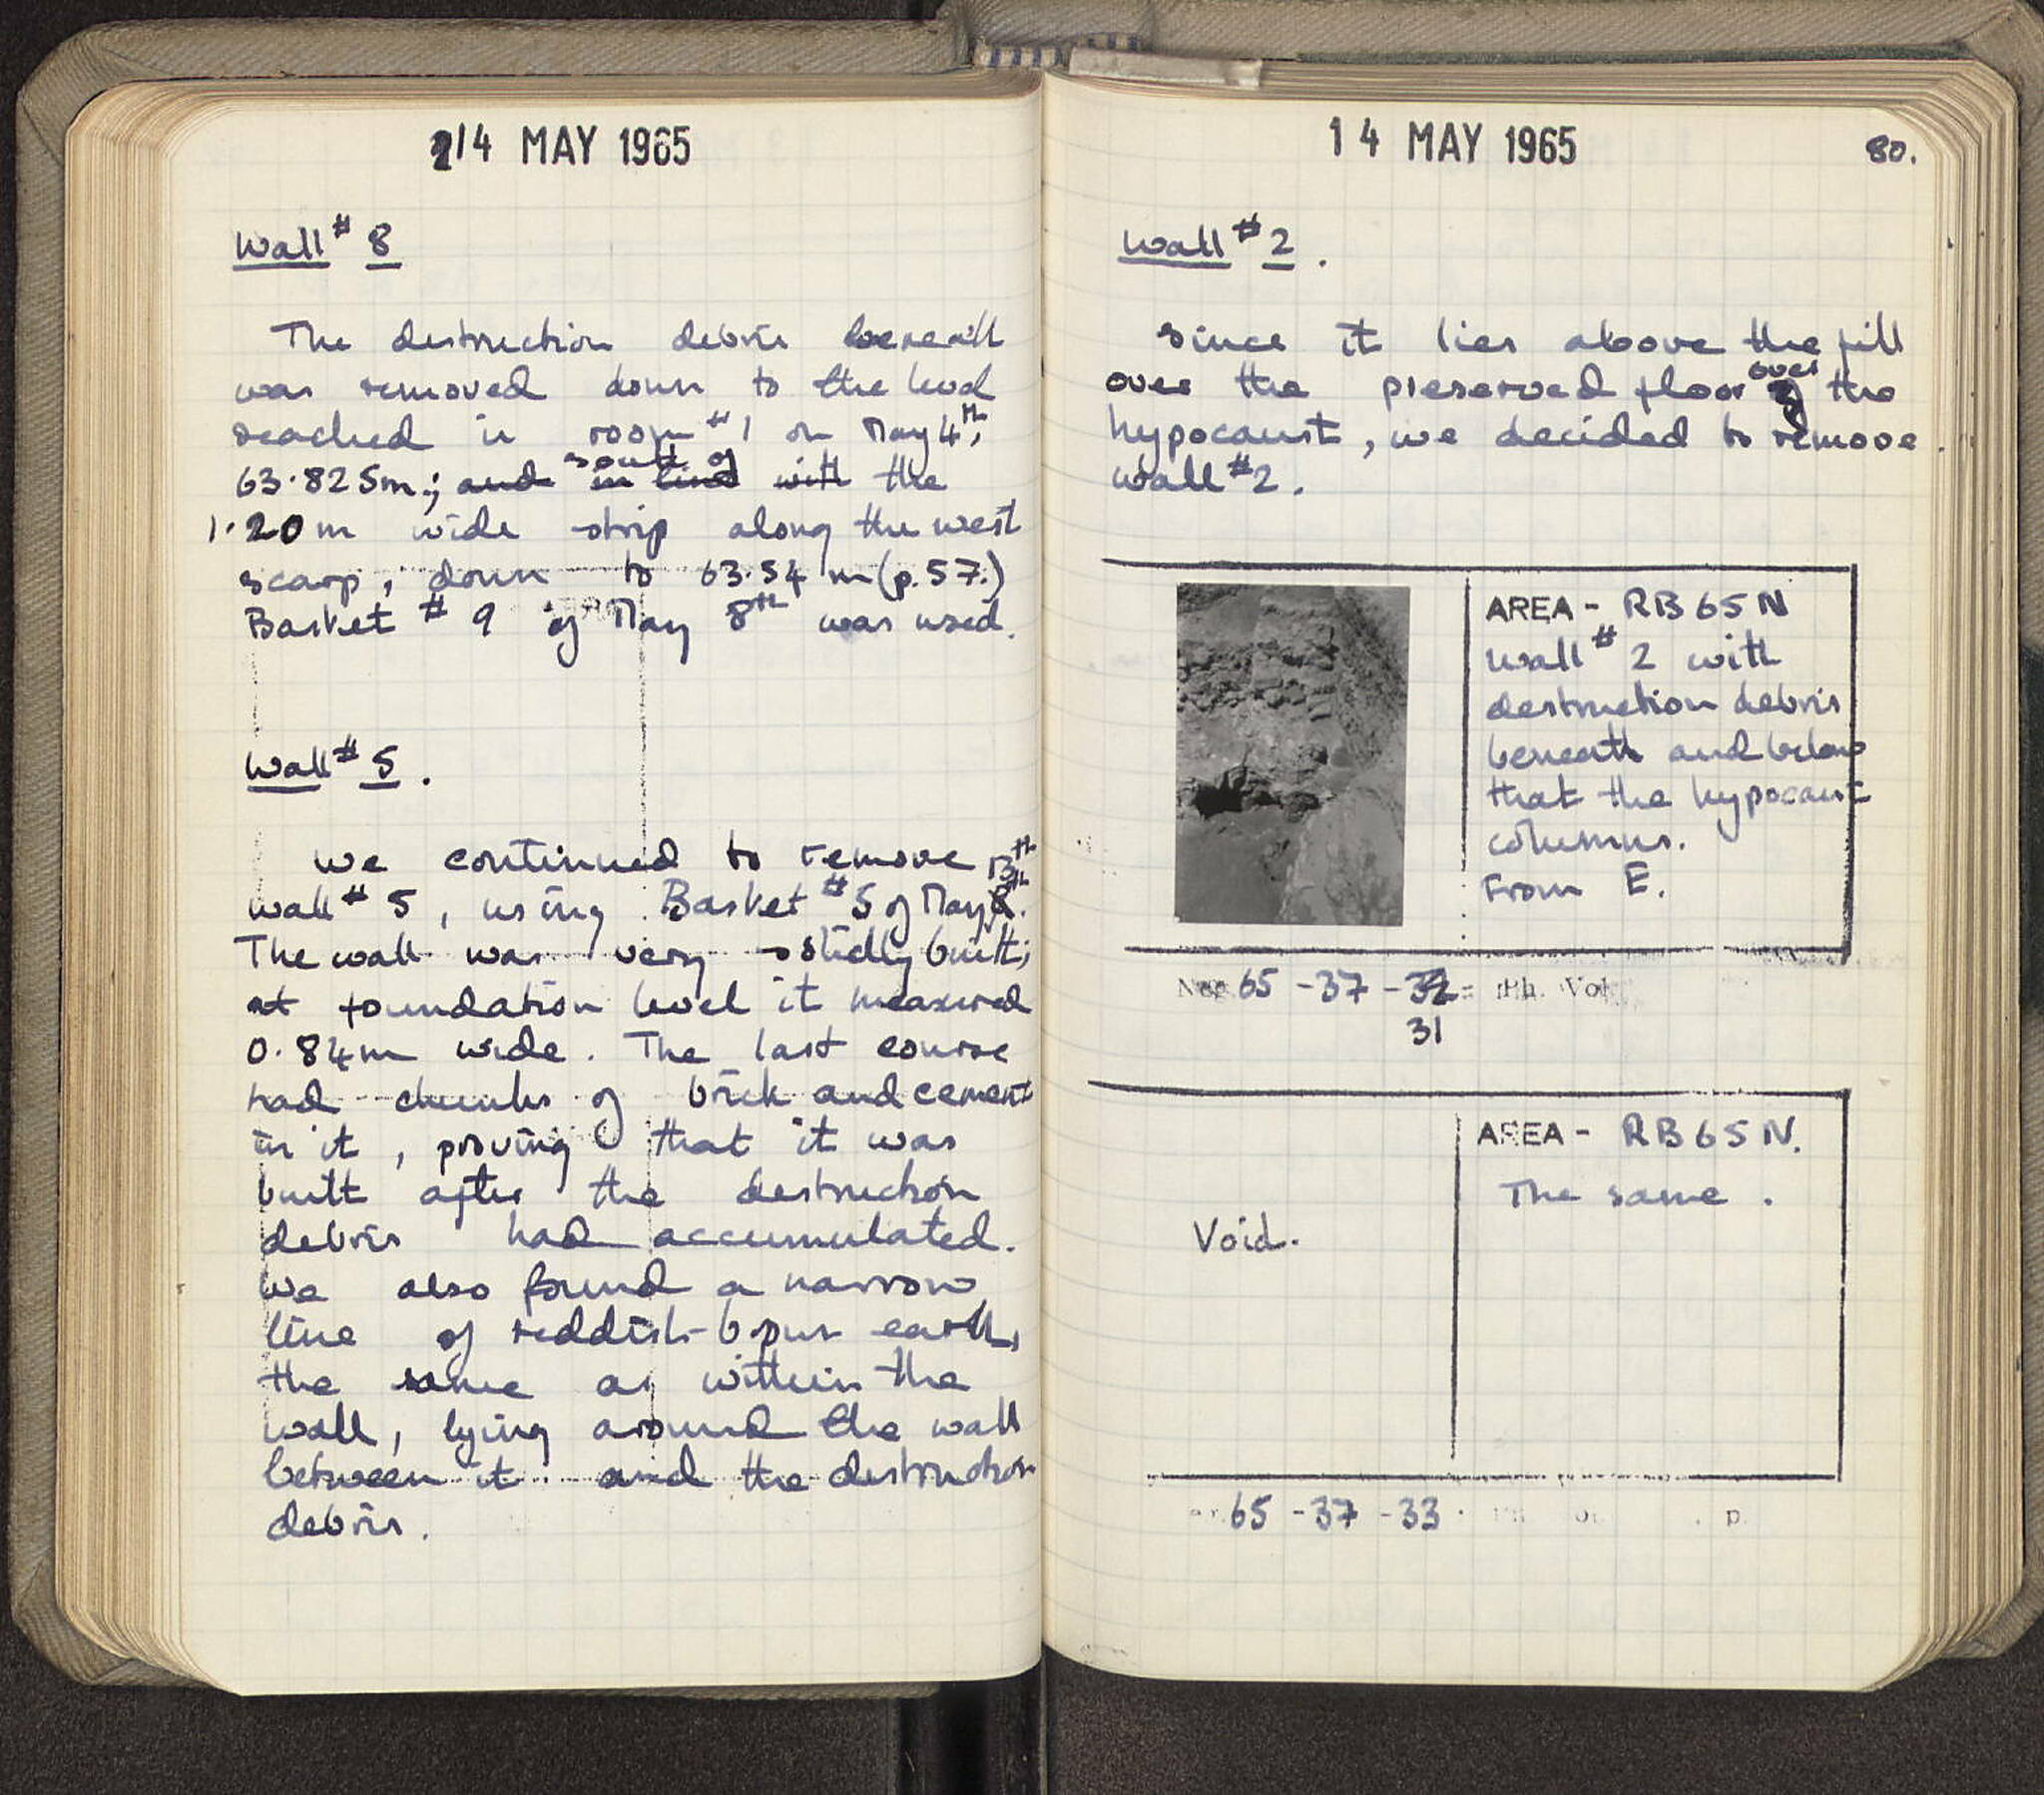 14 MAY 1965
Wall # 8
The destruction debris beneath
was removed down to the level
reached in room #1 on May 4th,
63.825m.; and in line with south of the
1.20m wide strip along the west
scarp, down to 63.54 m (p.57.)
Basket # 9 of May 8th was used.
Wall # 5.
We continued to remove
wall # 5, using Basket # 5 of May 13th.
The wall was very solidly built;
at foundation level it measured
0.84m wide. The last course
had chunks of brick and cement
in it, proving that it was
built after the destruction
debris had accumulated.
We also found a narrow
line of reddish-brown earth,
the same as within the
wall, lying around the wall
between it and the destruction
debris.
14 MAY 1965
80.
Wall # 2.
Since it lies above the fill
over the preserved floor over the
hypocaust, we decided to remove
wall #2.
AREA - RB 65 N
Wall # 2 with
destruction debris
beneath and below
that the hypocaust
columns.
From E.
Neg. 65 - 37 - 32 Ph. Vol
31
AREA - RB 65 N.
The same.
Void.
65 - 37 - 33 p.